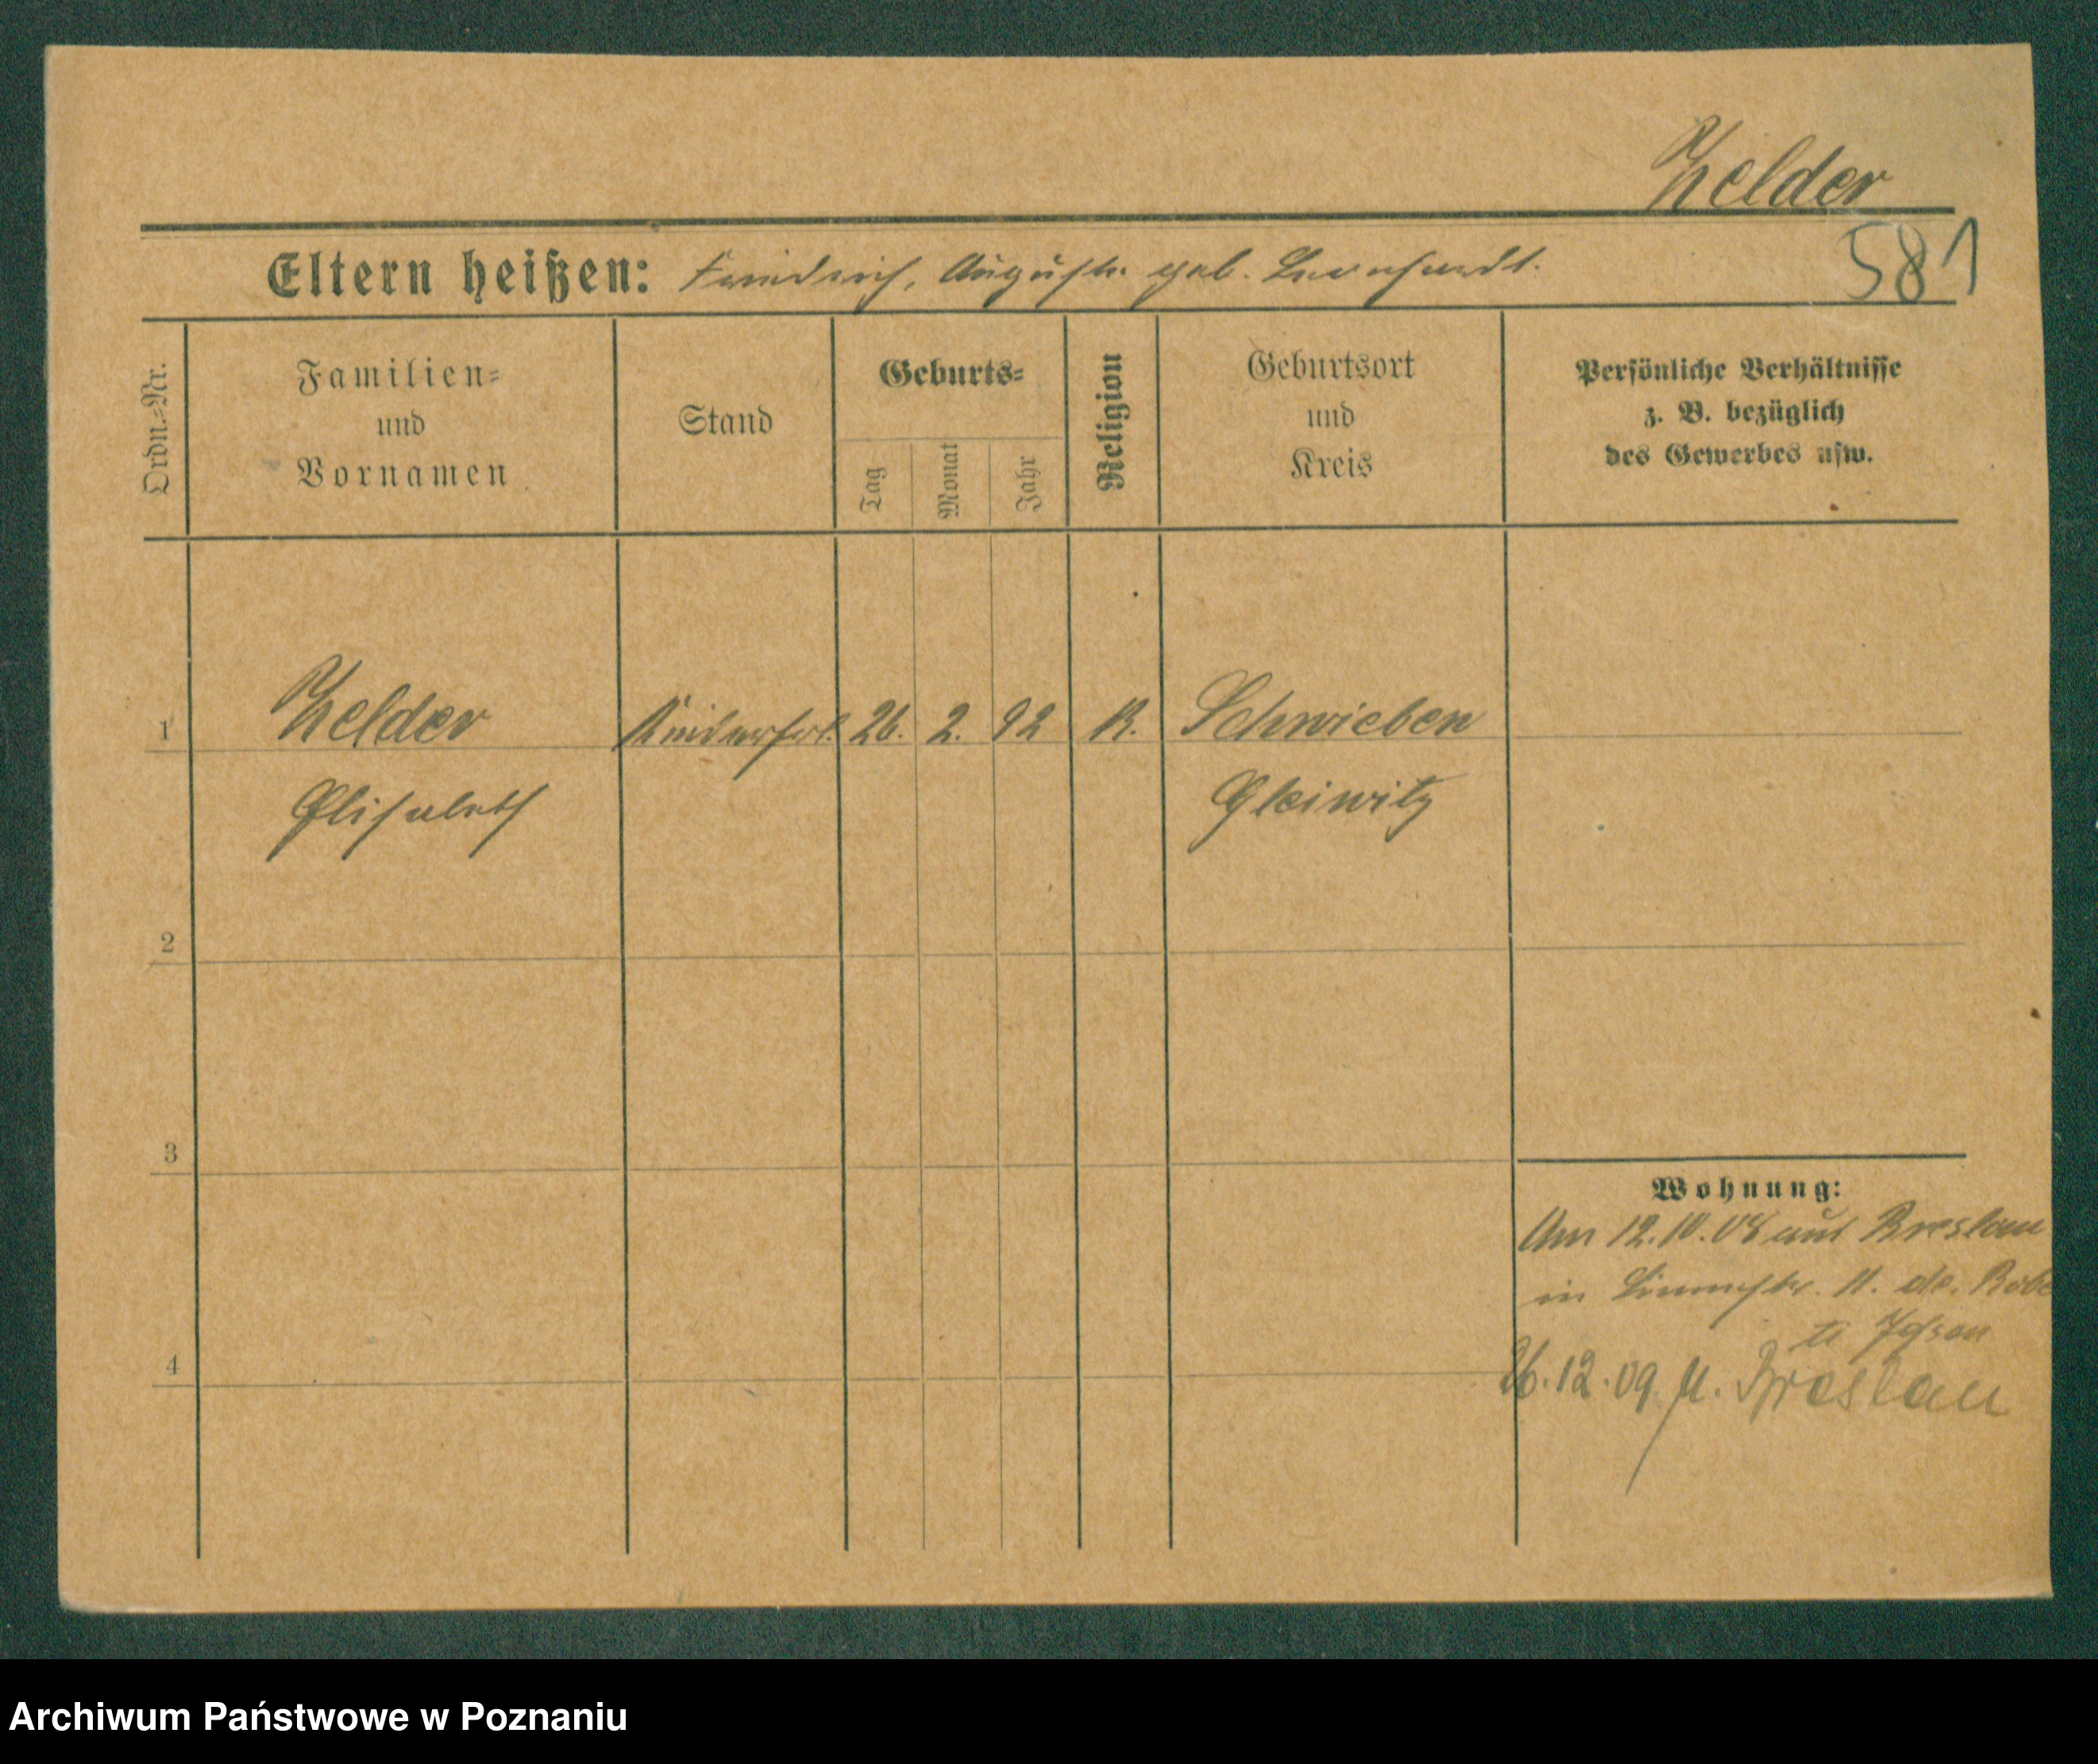 Zelder
581
Eltern heißen: Friedrich, Auguste geb. Leonhardt.
Ordn.=Nr.
Familien=
und
Vornamen
Stand
Geburts=
Tag
Monat
Jahr
Religion
Geburtsort
und
Kreis
Persönliche Verhältnisse
z. B. bezüglich
des Gewerbes usw.
1 Zelder Kinderfrl. 26. 2. 92 K. Schwieben
Elisabeth Gleiwitz
2
3
4
Wohnung:
Am 12.10.08 aus Breslau
in 11.
26.12.09 n. Breslau
Archiwum Państwowe w Poznaniu